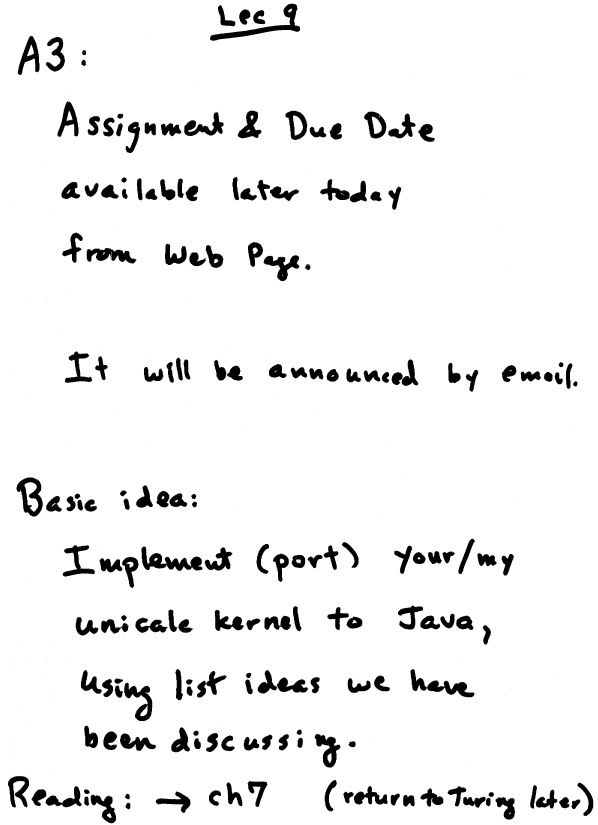 Lec 9
A3:
Assignment & Due Date
available later today
from Web Page.
It will be announced by email.
Basic idea:
Implement (port) your/my
unicalc kernel to Java,
using list ideas we have
been discussing.
Reading: → ch7 (return to Turing later)